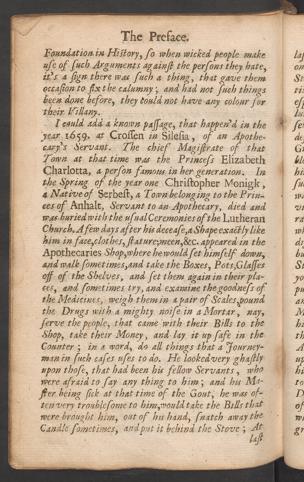 The Preface.
Foundation in History, so when wicked people make
use of such Arguments against the persons they hate,
it's a sign there was such a thing, that gave them
occasion to fix the calumny; and had not such things
been done before, they could not have any colour for
their Villany.
I could add a known passage, that happen'd in the
year 1659. at Crossen in Silesia, of an Apothe-
cary's Servant. The chief Magistrate of that
Town at that time was the Princess Elizabeth
Charlotta, a person famous in her generation. In
the Spring of the year one Christopher Monigk,
a Native of Serbest, a Town belonging to the Prin-
ces of Anhalt, Servant to an Apothecary, died and
was buried with the usual Ceremonies of the Lutheran
Church. A few days after his decease, a Shape exactly like
him in face, clothes, stature, meen, &c. appeared in the
Apothecaries Shop, where he would set himself down,
and walk sometimes, and take the Boxes, Pots, Glasses
off of the Shelves, and set them again in their pla-
ces, and sometimes try, and examine the goodness of
the Medicines, weigh them in a pair of Scales, pound
the Drugs with a mighty noise in a Mortar, nay,
serve the people, that came with their Bills to the
Shop, take their Money, and lay it up safe in the
Counter; in a word, do all things that a Journey-
man in such cases uses to do. He looked very ghastly
upon those, that had been his fellow Servants, who
were afraid to say any thing to him; and his Ma-
ster being sick at that time of the Gout, he was of-
ten very troublesome to him, would take the Bills that
were brought him, out of his hand, snatch away the
Candle sometimes, and put it behind the Stove; At
last